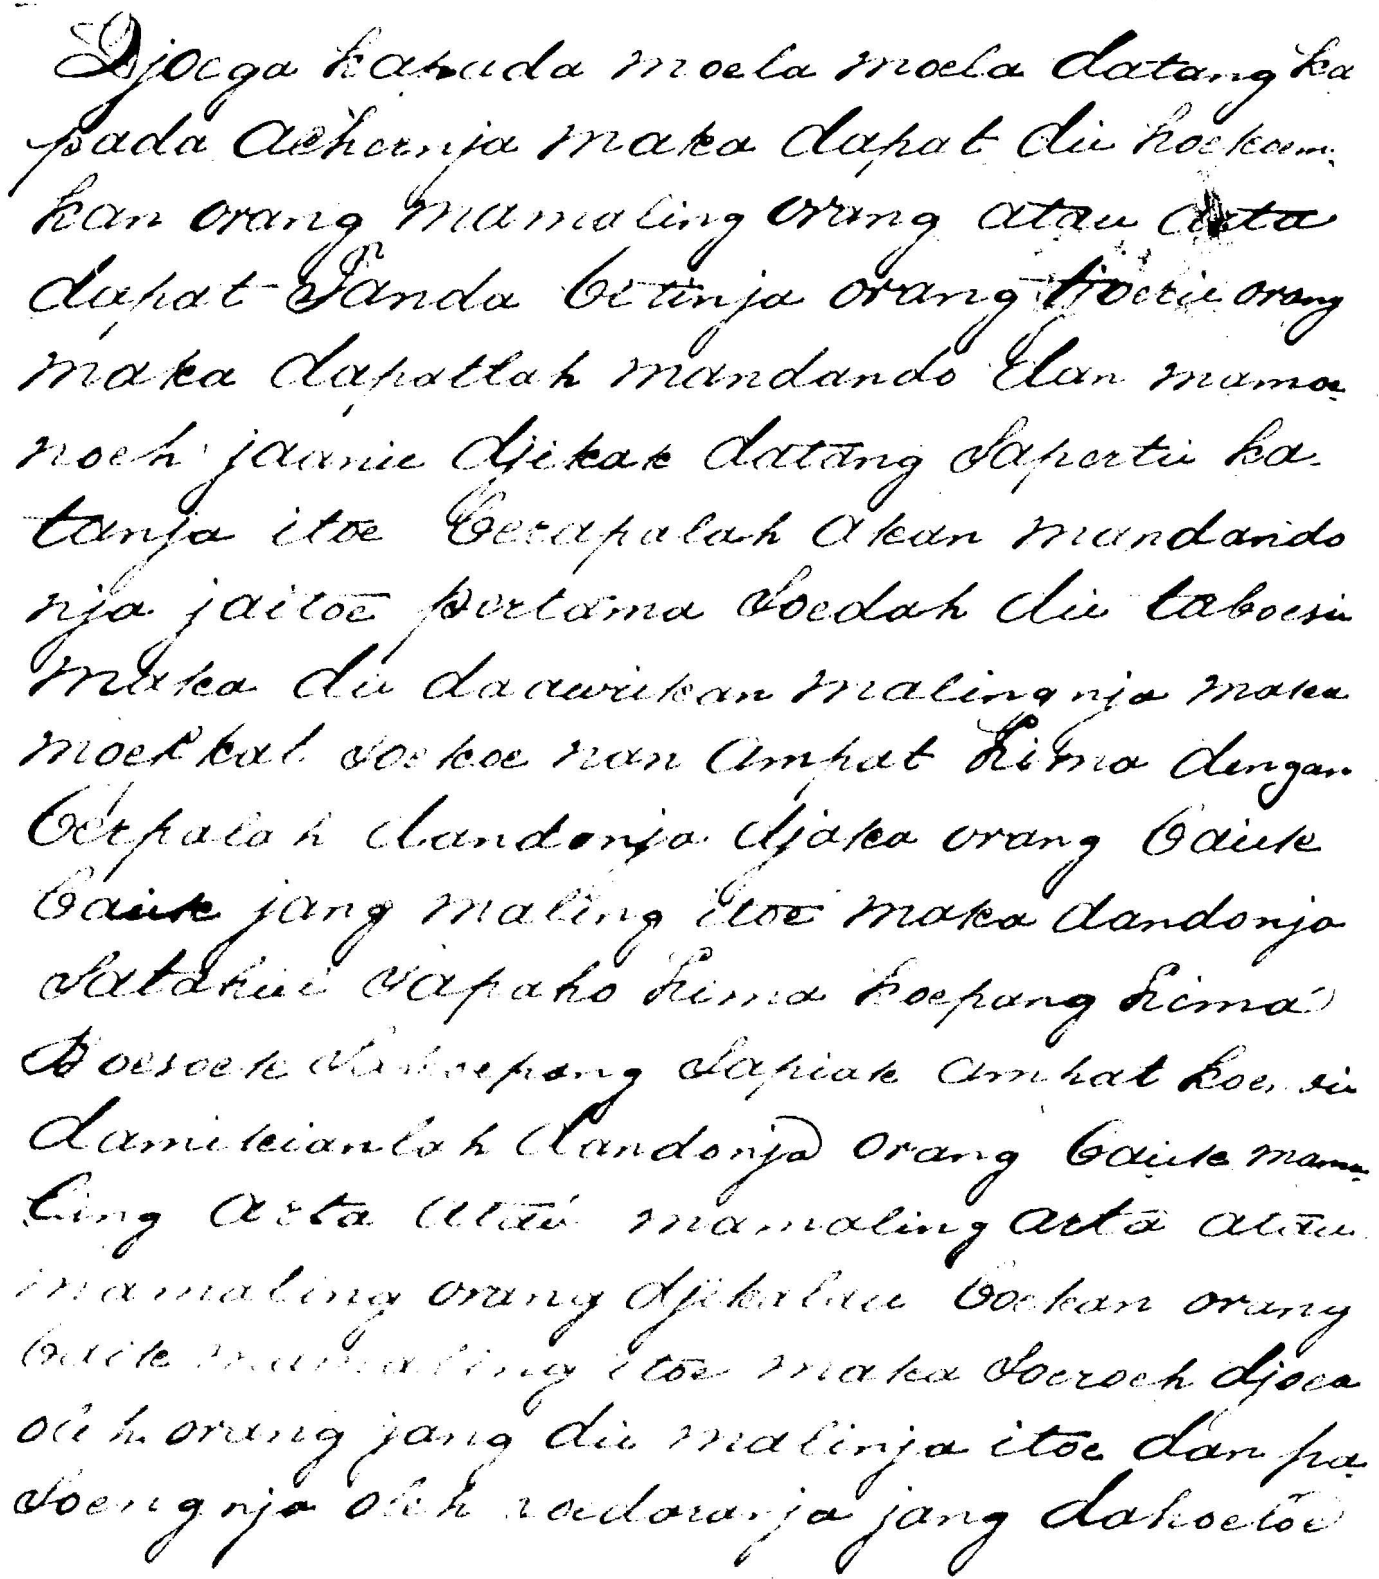 Djoega kapada moela moela datang ka
pada achernja maka dapat die hoekoem-
kan orang mamaling orang atau arta
dapat Tanda betinja orang tjoerie orang
maka dapatlah mandando dan mamoe-
noeh jaanie djikak datang sapertie ka-
tanja itoe berapalah akan mandando
nja jaitoe pertama soedah die taboesie
maka die daawikan malingnja maka
moekkal soekoe nan ampat lima dengan
berpalah dandonja djaka orang baiek
baiek jang maling itoe maka dandonja
satahiel sapaho lima koepang lima
Boesoek sakoepang sapiak ampat koendie
damikianlah dandonja orang baiek mama-
ling arta atau mamaling arta atau
mamaling orang djikalau boekan orang
baik mamaling itoe maka soeroeh djoea
oleh orang jang die malinja itoe dan pa
soengnja oleh sadaranja jang dahoeloe